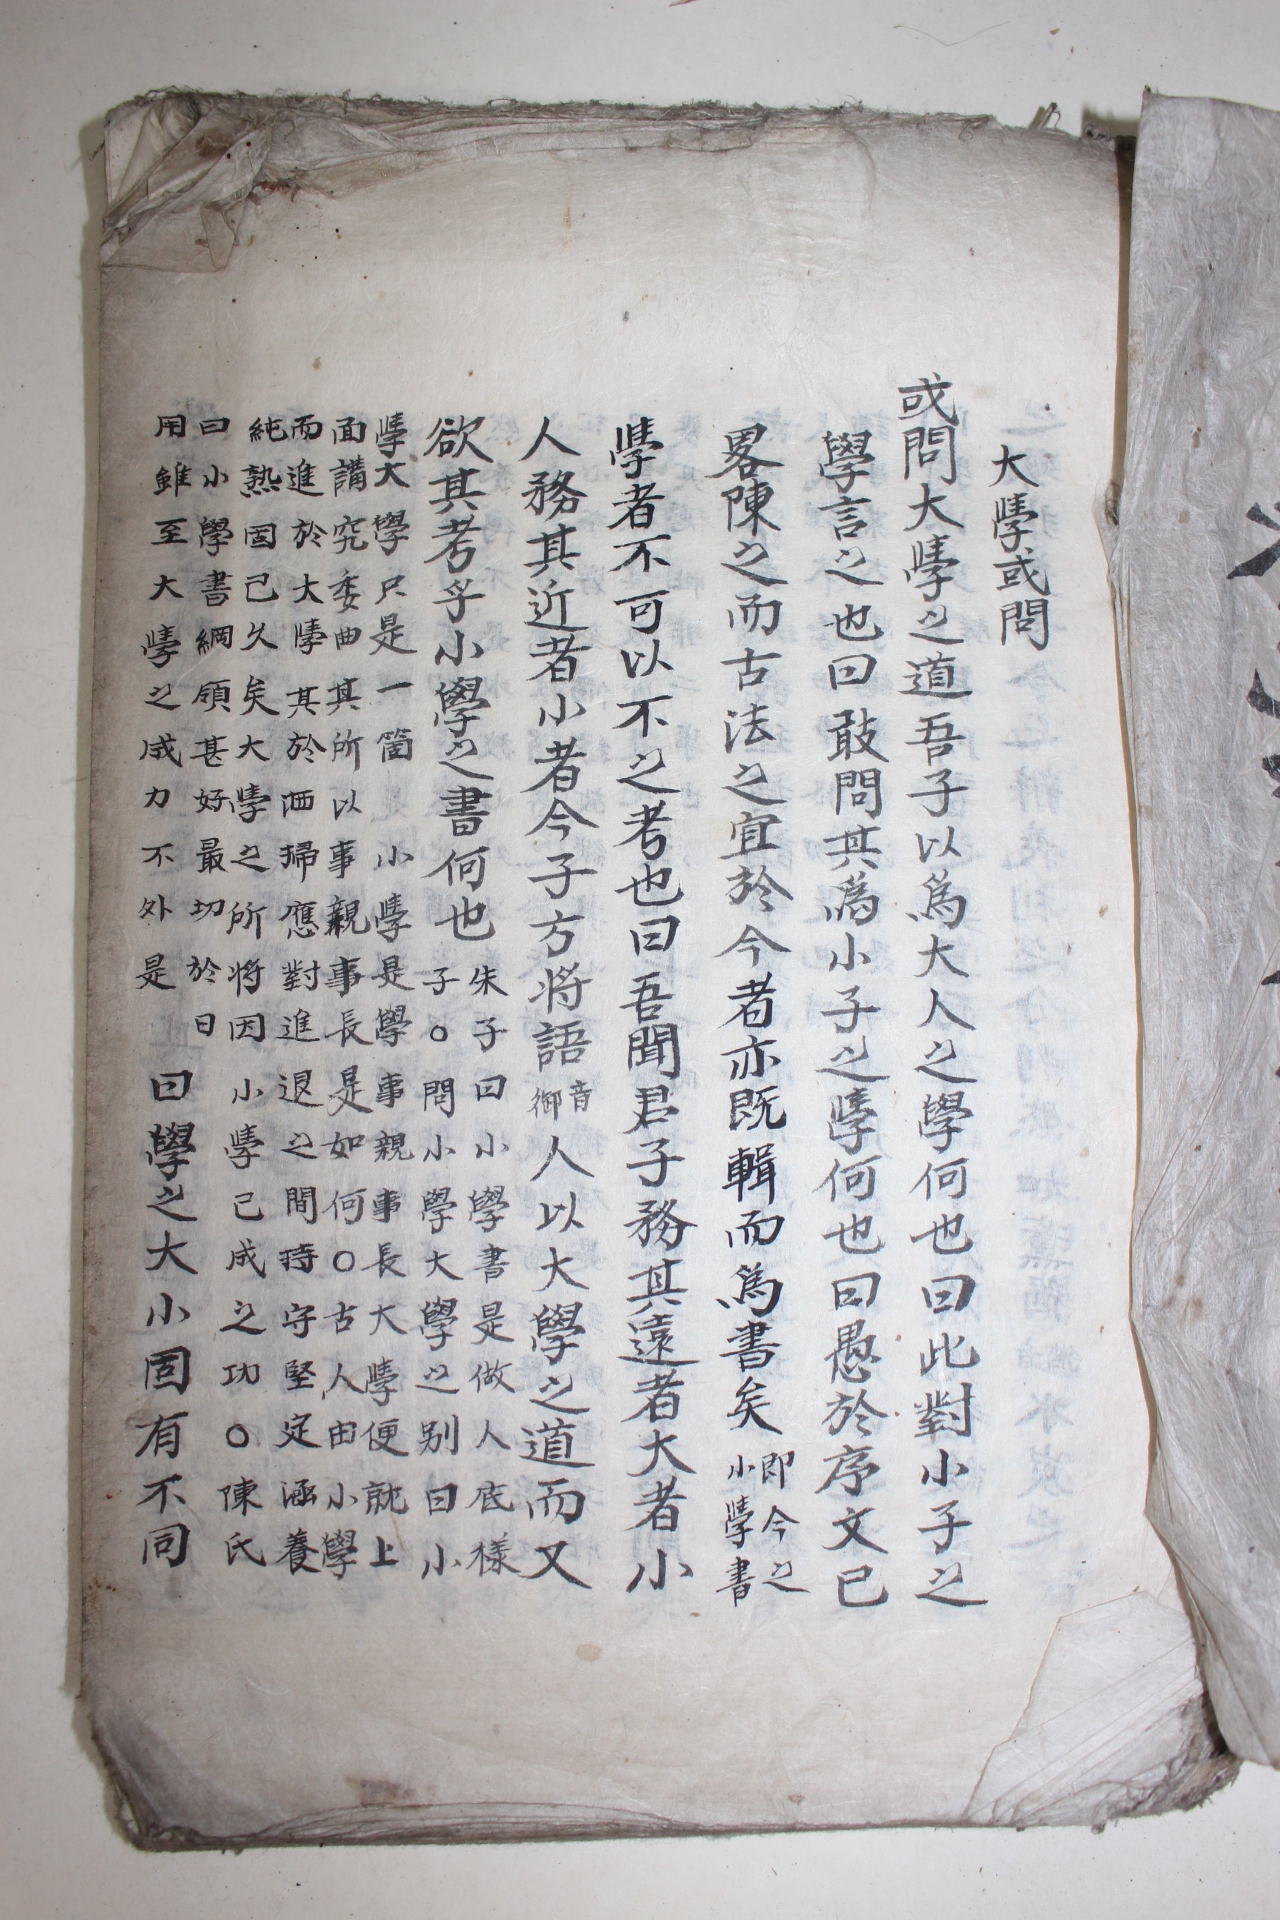 大學或問
或問大學之道吾子以爲大人之學何也曰此對小子之
學言之也曰敢問其爲小子之學何也曰愚於序文已
畧陳之而古法之宜於今者亦既輯而爲書矣即今之
小學書
學者不可以不之考也曰吾聞君子務其遠者大者小
人務其近者小者今子方将語音
御人以大學之道而又
欲其考乎小學之書何也朱子曰小學書是做人底樣
子○問小學大學之别曰小
學大學只是一箇是小學是學事親事長大學便就上
面講究委曲其所以事親事長是如何○古人由小學
而進於大學其於洒掃應對進退之間持守堅定涵養
純熟固已久矣大學之所将因小學已成之功○陳氏
曰小學書綱領甚好最切於日
用雖至大學之成力不外是曰學之大小固有不同